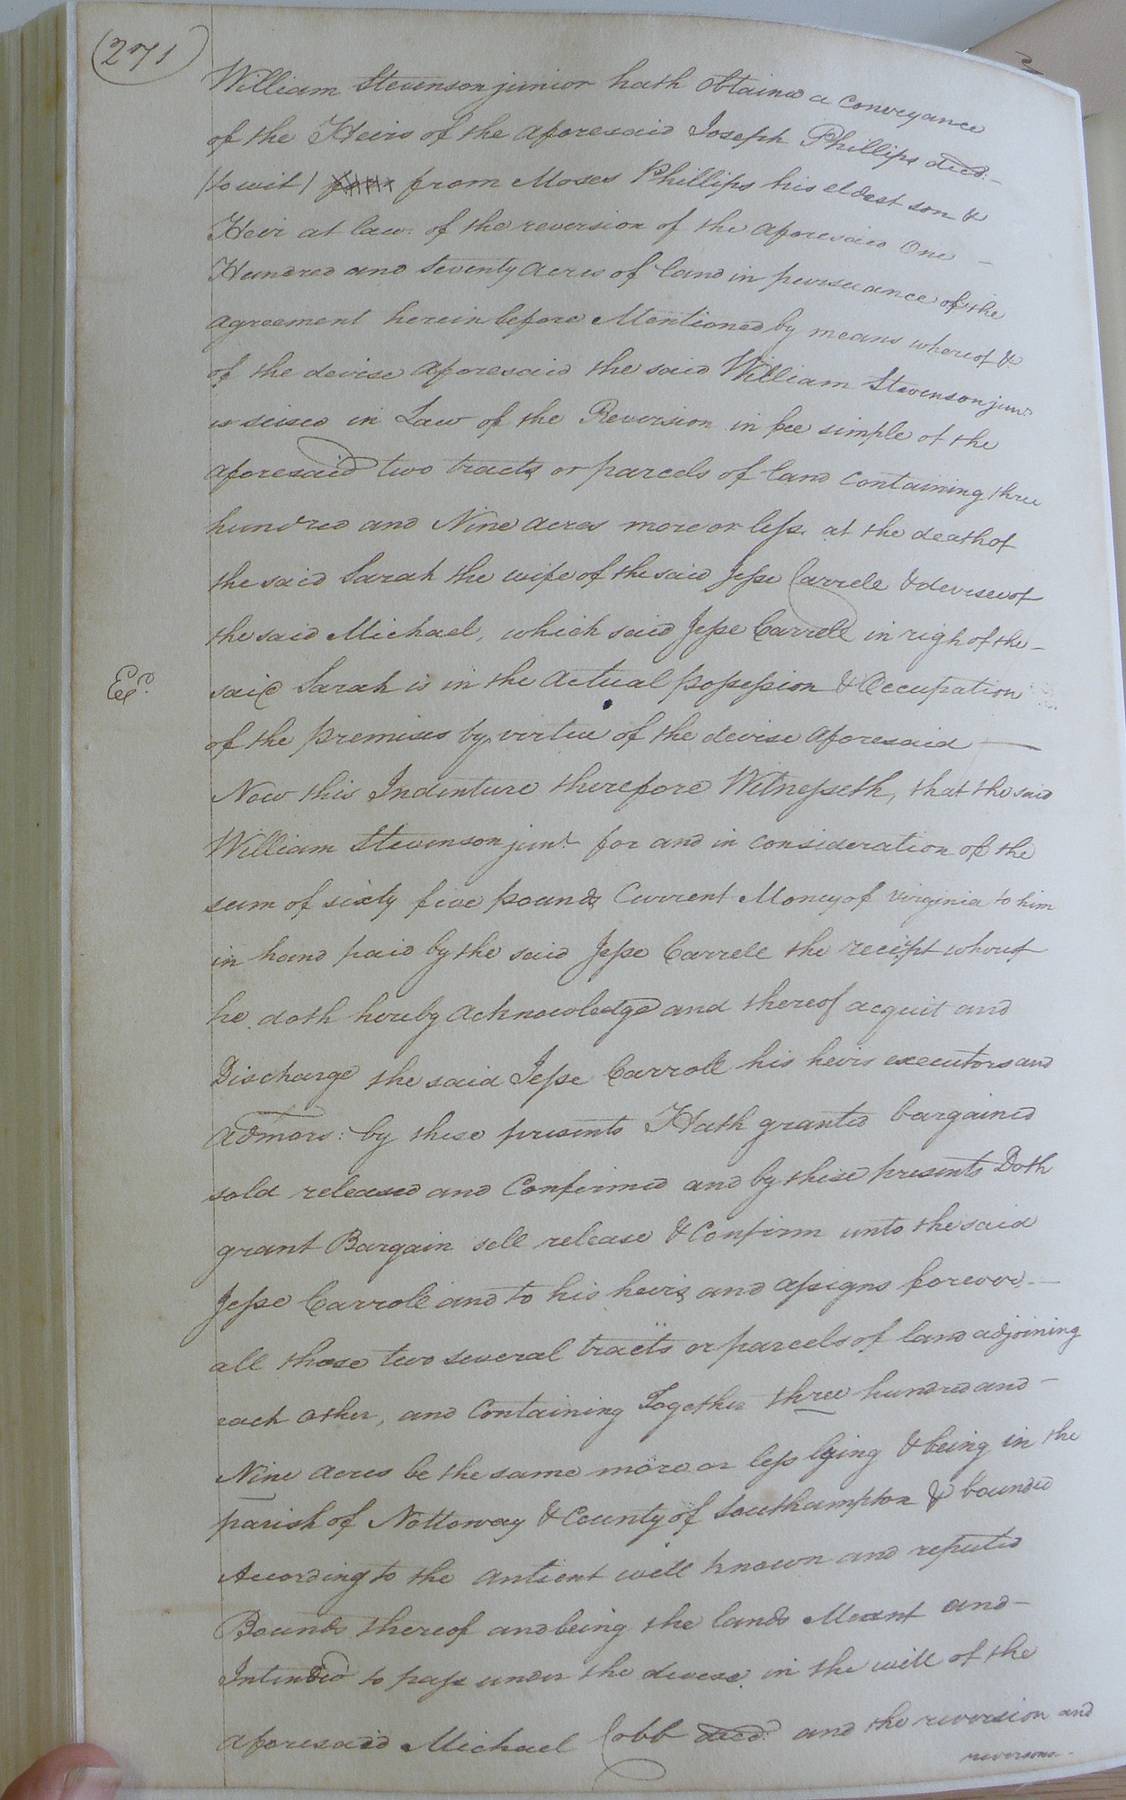 (271)
William Stevenson junior hath obtained a conveyance
of the Heirs of the aforesaid Joseph Phillips decd.
(to wit) from Moses Phillips his eldest son &
Heir at law of the reversion of the aforesaid One
Hundred and Seventy Acres of land in pursuance of the
agreement herein before Mentioned by means whereof &
of the devise aforesaid the said William Stevenson junr
is seised in Law of the Reversion in fee simple of the
aforesaid two tracts or parcels of land containing three
hundred and Nine acres more or less at the death of
the said Sarah the wife of the said Jesse Carrele & devisee of
the said Michael, which said Jesse Carrell in righ of the
said Sarah is in the actual possession & Occupation
of the premises by virtue of the devise aforesaid
Now this Indenture therefore Witnesseth, that the said
William Stevenson junr. for and in consideration of the
sum of sixty five pounds Current Money of Virginia to him
in hand paid by the said Jesse Carrele the receipt whereof
he doth hereby acknowledge and thereof acquit and
Discharge the said Jesse Carroll his heirs executors and
admors: by these presents Hath granted bargained
sold released and Confirmed and by these presents Doth
grant Bargain sell release & Confirm unto the said
Jesse Carroll and to his heirs and assigns forever
all those two several tracts or parcels of land adjoining
each other, and Containing Together three hundred and
Nine acres be the same more or less lying & being in the
parish of Nottoway & County of Southampton & bounded
According to the antient well known and reputed
Bounds thereof and being the lands Meant and
Intended to pass under the devese in the will of the
aforesaid Michael Cobb decd. and the reversion and
reversions